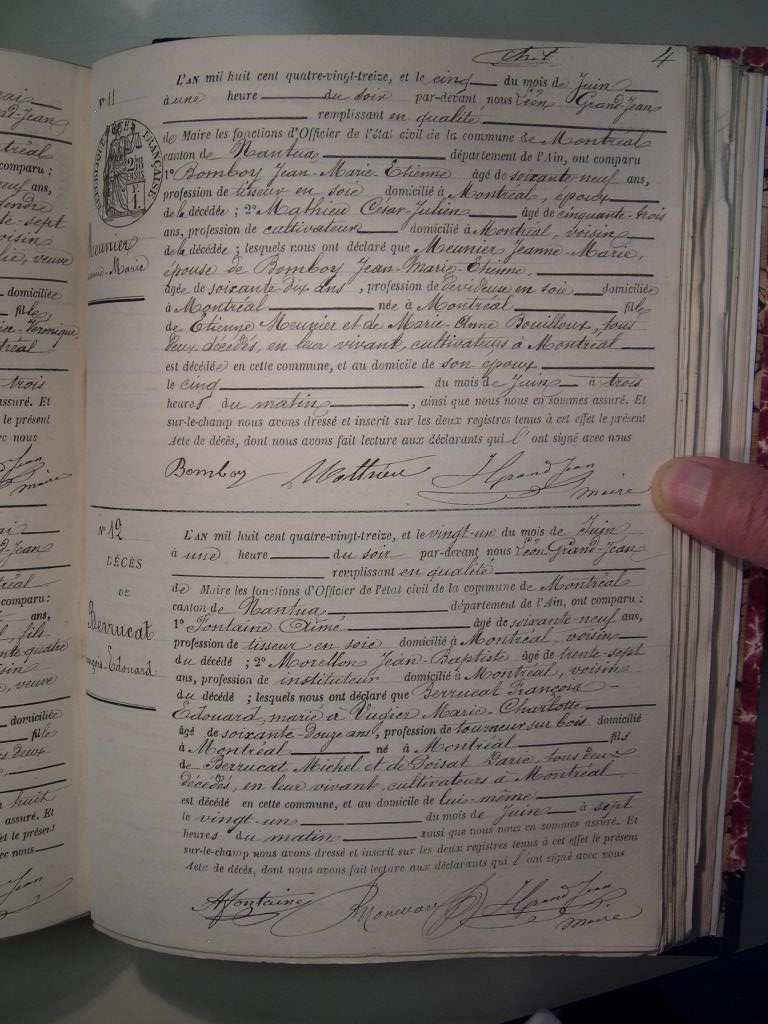 4
N° 11
RÉPUBLIQUE FRANÇAISE
Meunier
Jeanne-Marie
L'AN mil huit cent quatre-vingt-treize, et le cinq du mois de Juin
à une heure du soir par-devant nous Léon Grand-Jean
remplissant en qualité
de Maire les fonctions d'Officier de l'état civil de la commune de Montréal
canton de Nantua département de l'Ain, ont comparu :
1° Bomboy Jean-Marie-Etienne âgé de soixante-neuf ans,
profession de tisseur en soie domicilié à Montréal, époux
de la décédée ; 2° Mathieu César-Julien âgé de cinquante-trois
ans, profession de cultivateur domicilié à Montréal, voisin
de la décédée ; lesquels nous ont déclaré que Meunier Jeanne-Marie,
épouse de Bomboy Jean-Marie-Etienne.
âgée de soixante-dix ans, profession de dévideuse en soie domiciliée
à Montréal née à Montréal fille
de Etienne Meunier et de Marie-Anne Bouilloux, tous
deux décédés, en leur vivant, cultivateurs à Montréal
est décédée en cette commune, et au domicile de son époux
le cinq du mois de Juin à trois
heures du matin, ainsi que nous nous en sommes assuré. Et
sur-le-champ nous avons dressé et inscrit sur les deux registres tenus à cet effet le présent
Acte de décès, dont nous avons fait lecture aux déclarants qui l'ont signé avec nous
Bomboy Mathieu L Grand Jean
maire
N° 12
DÉCÈS
DE
Berrucat
François-Edouard
L'AN mil huit cent quatre-vingt-treize, et le vingt-un du mois de Juin
à une heure du soir par-devant nous Léon Grand-Jean
remplissant en qualité
de Maire les fonctions d'Officier de l'état civil de la commune de Montréal
canton de Nantua département de l'Ain, ont comparu :
1° Fontaine Aimé âgé de soixante-neuf ans,
profession de tisseur en soie domicilié à Montréal, voisin
du décédé ; 2° Morellon Jean-Baptiste âgé de trente-sept
ans, profession de instituteur domicilié à Montréal, voisin
du décédé ; lesquels nous ont déclaré que Berrucat François
Edouard, marié à Vugier Marie-Charlotte
âgé de soixante-douze ans, profession de tourneur sur bois domicilié
à Montréal né à Montréal fils
de Berrucat Michel et de Poisat Marie, tous deux
décédés, en leur vivant cultivateurs à Montréal
est décédé en cette commune, et au domicile de lui-même
le vingt-un du mois de Juin à sept
heures du matin ainsi que nous nous en sommes assuré. Et
sur-le-champ nous avons dressé et inscrit sur les deux registres tenus à cet effet le présent
Acte de décès, dont nous avons fait lecture aux déclarants qui l'ont signé avec nous
A Fontaine L Grand Jean
maire